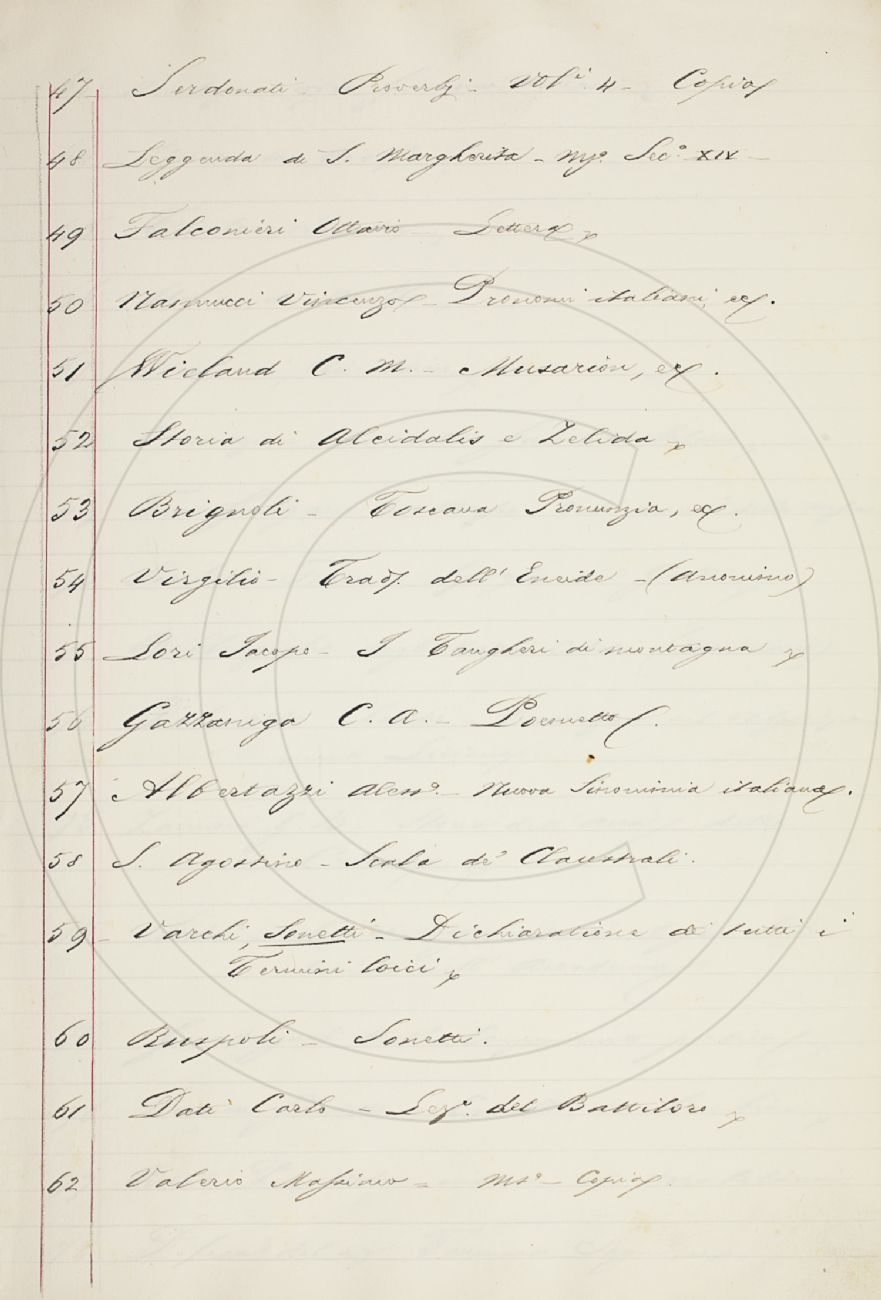 47 Serdonati - Proverbj - Vol.i 4 - Copia
48 Leggenda di S. Margherita - Ms. Sec.o XIV -
49 Falconieri Ottavio - Lettera
50 Nannucci Vincenzo - Pronomi italiani, ec.
51 Wieland C. M. - Musarion, ec.
52 Storia di Alcidalis e Zelida
53 Brignoli - Toscana Pronunzia, ec.
54 Virgilio - Trad. dell' Eneide - (Anonimo)
55 Lori Jacopo - I Tangheri di montagna
56 Gazzaniga C. A. - Poemetto.
57 Albertazzi Aless.o - Nuova Sinonimia italiana.
58 S. Agostino - Scala de' Claustrali.
59 - Varchi, Sonetti - Dichiaratione di tutti i
Termini loici
60 Ruspoli - Sonetti.
61 Dati Carlo - Lez.e del Battiloro
62 Valerio Massimo - Ms.o - Copia